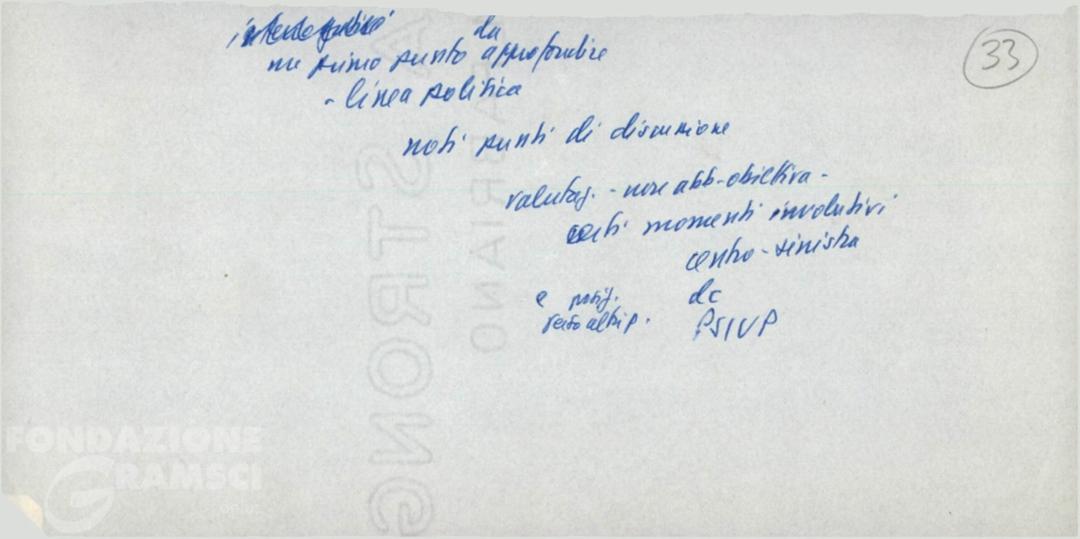 33
da
un primo punto approfondire
- linea politica
noti punti di discussione
valutaz. - non abb. obiettiva -
certi momenti involutivi
centro-sinistra
e posiz. dc
verso altri p. PSIUP
FABRIANO
STRONG
FONDAZIONE
GRAMSCI